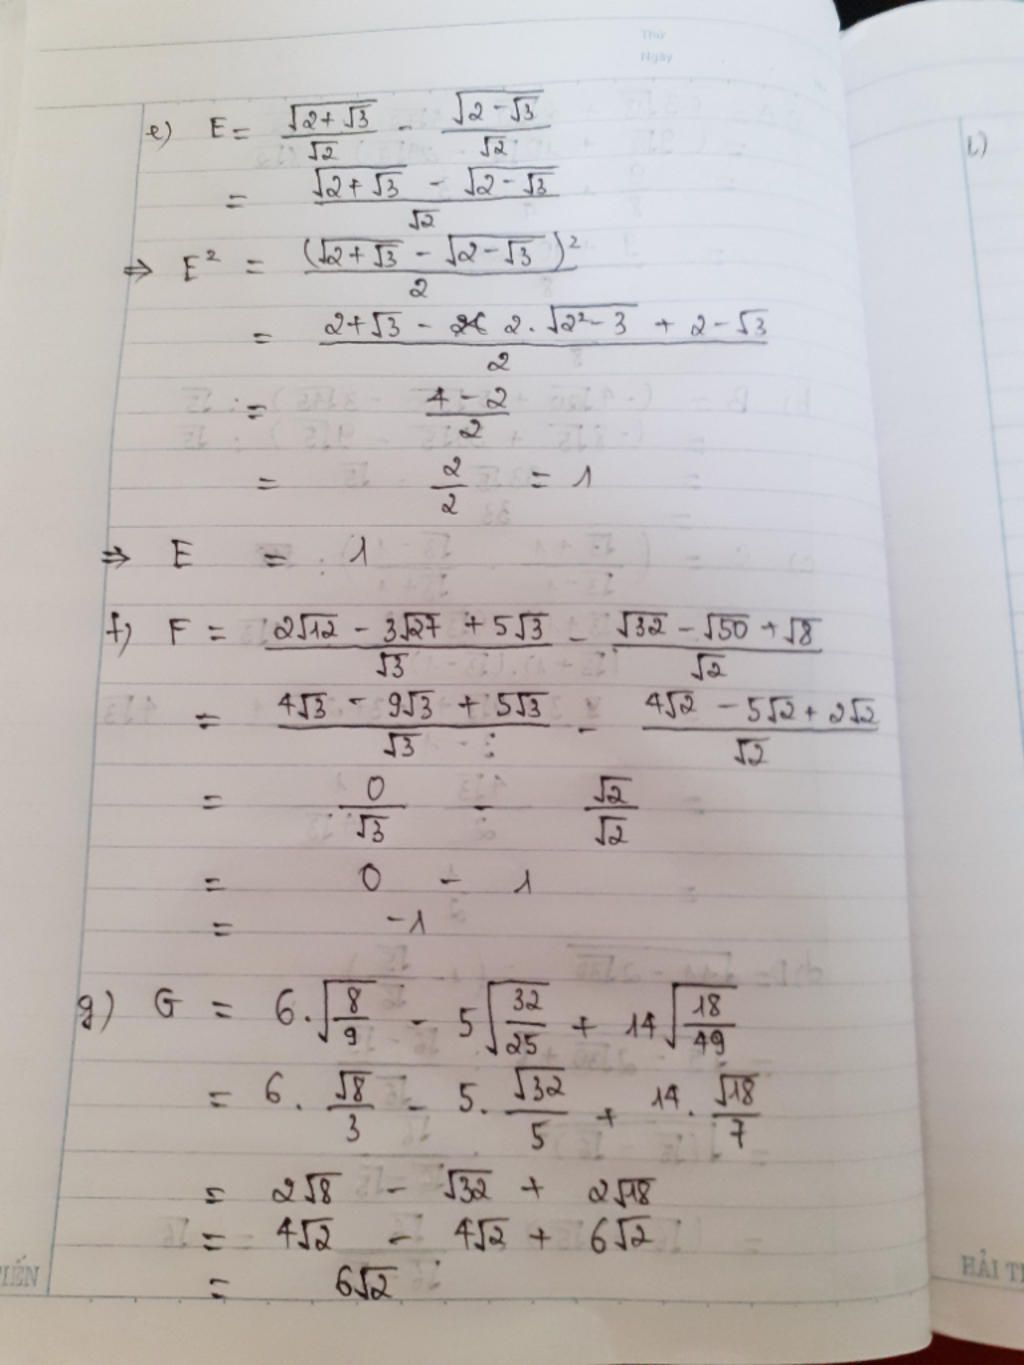 Thứ
Ngày
e) E = \frac{\sqrt{2+\sqrt{3}}}{\sqrt{2}} - \frac{\sqrt{2-\sqrt{3}}}{\sqrt{2}}
= \frac{\sqrt{2+\sqrt{3}} - \sqrt{2-\sqrt{3}}}{\sqrt{2}}
⇒ E² = \frac{(\sqrt{2+\sqrt{3}} - \sqrt{2-\sqrt{3}})^2}{2}
= \frac{2+\sqrt{3} - 2.\sqrt{2^2-3} + 2-\sqrt{3}}{2}
= \frac{4-2}{2}
= \frac{2}{2} = 1
⇒ E = 1
f) F = \frac{2\sqrt{12} - 3\sqrt{27} + 5\sqrt{3}}{\sqrt{3}} - \frac{\sqrt{32} - \sqrt{50} + \sqrt{8}}{\sqrt{2}}
= \frac{4\sqrt{3} - 9\sqrt{3} + 5\sqrt{3}}{\sqrt{3}} - \frac{4\sqrt{2} - 5\sqrt{2} + 2\sqrt{2}}{\sqrt{2}}
= \frac{0}{\sqrt{3}} - \frac{\sqrt{2}}{\sqrt{2}}
= 0 - 1
= -1
g) G = 6.\sqrt{\frac{8}{9}} - 5\sqrt{\frac{32}{25}} + 14\sqrt{\frac{18}{49}}
= 6.\frac{\sqrt{8}}{3} - 5.\frac{\sqrt{32}}{5} + 14.\frac{\sqrt{18}}{7}
= 2\sqrt{8} - \sqrt{32} + 2\sqrt{18}
= 4\sqrt{2} - 4\sqrt{2} + 6\sqrt{2}
= 6\sqrt{2}
TIẾN
i)
HẢI T